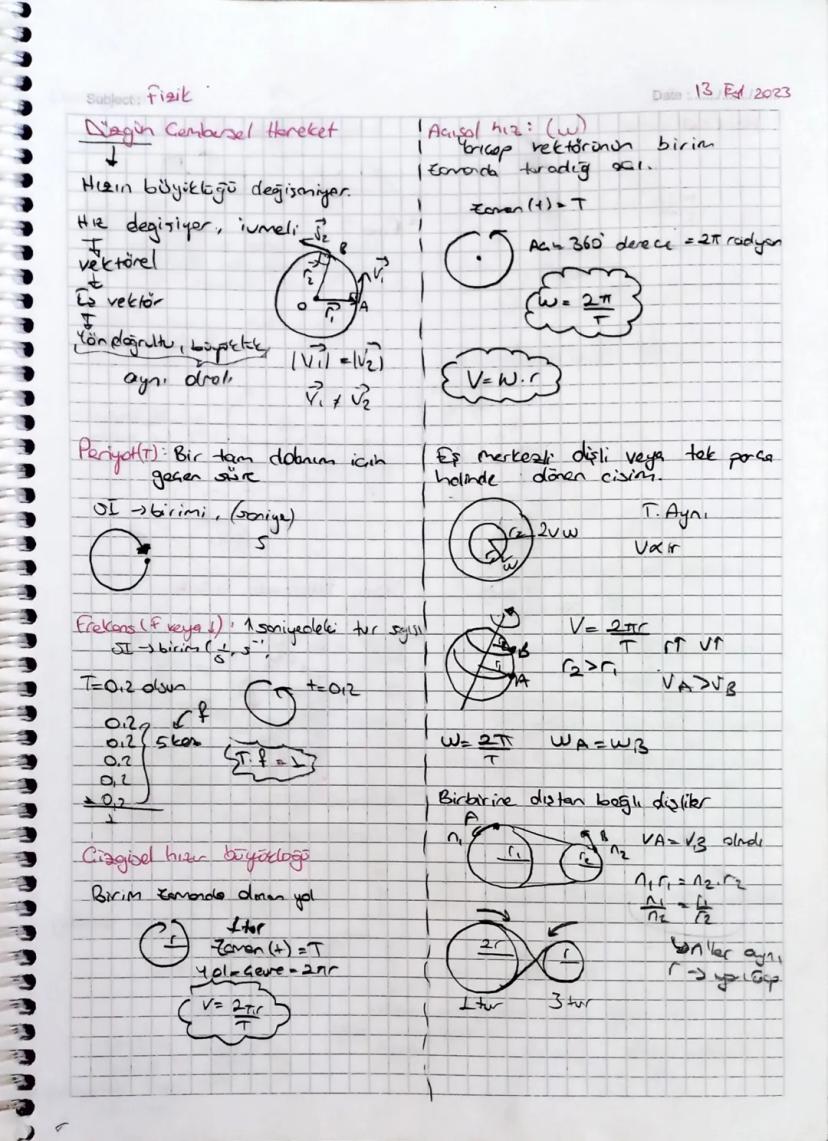 Subject: Fizik
Date: 13 Eyl 2023
Düzgün Cembersel Hareket
Hızın büyüklüğü değişmiyor.
Hız değişiyor, ivmeli
vektörel
Eş vektör
Yön doğrultu, büyüklük
aynı olmalı
V₂ B
r₂ V₁
O r₁ A
|V₁| = |V₂|
V₁ ≠ V₂
Periyot(T): Bir tam dolanım için
geçen süre
SI → birimi, (saniye)
s
Frekans (f veya ): 1 saniyedeki tur sayısı
SI → birim (1/s, s⁻¹,
T=0,2 olsun
t=0,2
0,2
0,2
0,2
0,2
+ 0,2
1
f
5 kez
T.f = 1
Çizgisel hızın büyüklüğü
Birim zamanda alınan yol
r
1 tur
Zaman (t) = T
Yol = Çevre = 2πr
V = 2πr/T
Açısal hız: (w)
Yarıçap vektörünün birim
zamanda taradığı açı.
Zaman (t) = T
Açı 360° derece = 2π radyan
w = 2π/T
V = w.r
Eş merkezli dişli veya tek parça
halinde dönen cisim.
r₂ 2V w
r w
T. Aynı
V∝r
B
A
V = 2πr/T r↑ V↑
r₂ > r₁
VA > VB
w = 2π/T wA = wB
Birbirine dıştan bağlı dişliler
A
n₁ r₁ r₂ B n₂
VA = VB
n₁r₁ = n₂.r₂
n₁/n₂ = r₁/r₂
2r r
1 tur 3 tur
aynı
r →